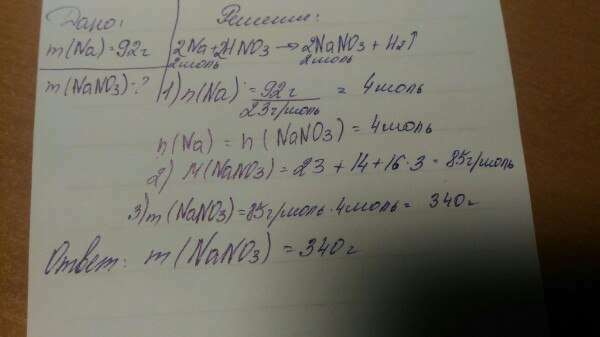 Дано: Решение:
m(Na)=92г 2Na+2HNO3 → 2NaNO3 + H2↑
2моль 2моль
m(NaNO3)-? 1) n(Na) = 92г / 23г/моль = 4моль
n(Na) = n(NaNO3) = 4моль
2) M(NaNO3) = 23 + 14 + 16·3 = 85г/моль
3) m(NaNO3)=85г/моль·4моль= 340г
Ответ: m(NaNO3) = 340г